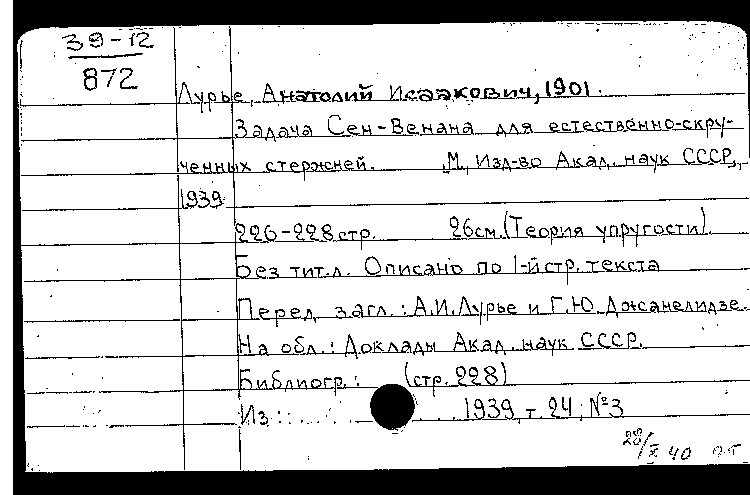 39-12
872
Лурье, Анатолий Исаакович, 1901.
Задача Сен-Венана для естественно-скру-
ченных стержней. М, Изд-во Акад. наук СССР,
1939
226-228 стр. 26см. (Теория упругости).
Без тит.л. Описано по 1-й стр. текста
Перед загл.: А.И.Лурье и Г.Ю.Джанелидзе.
На обл.: Доклады Акад. наук СССР.
Библиогр.: (стр. 228)
Из: 1939, т. 24, №3
40